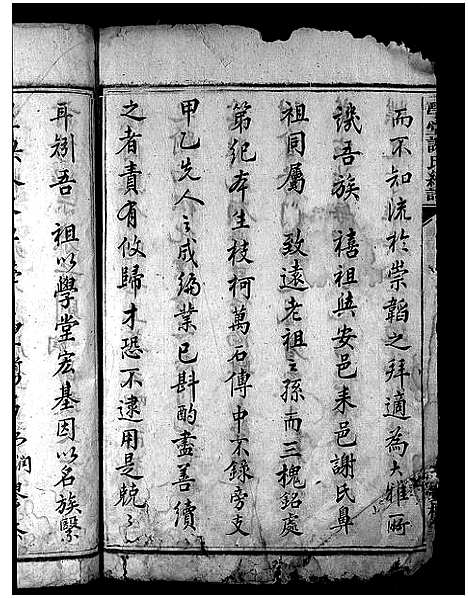 而不知流於崇韜之拜適為大雅所
譏吾族 禧祖與安邑耒邑謝氏鼻
祖同屬 致遠老祖之孫而三槐銘處
第紀本生枝柯萬石傳中不錄旁支
甲乙先人之成編業已斟酌盡善續
之者責有攸歸才恐不逮用是兢之
耳矧吾 祖以學堂宏基因以名族緊